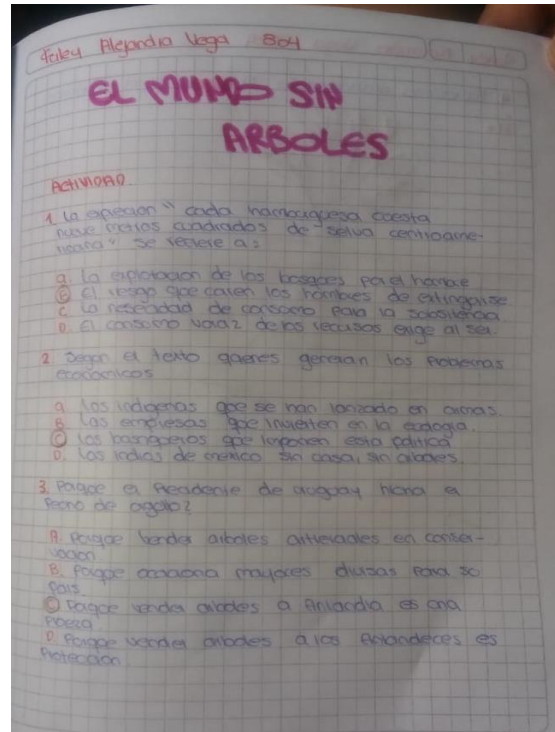 Alejandra Vega 804
EL MUNDO SIN
ARBOLES
ACTIVIDAD
1. la cada hamburguesa cuesta
nueve metros cuadrados de selva centroame-
ricana" se refiere a:
a. la explotacion de los bosques por el hombre
B el riesgo que corren los hombres de extinguirse
C la necesidad de consumo para la
D. El consumo de los recursos exige al ser.
2. Segun el texto quienes generan los problemas
economicos
a los indigenas que se han lanzado en armas.
B. Las empresas que invierten en la ecologia.
C los banqueros que imponen esta politica
D. los indios de mexico sin casa, sin arboles.
3. Porque el Presidente de hicha el
pecho de
A. Porque vender arboles en conser-
vacion
B. Porque mayores divisas para su
Pais
C Porque vender arboles a es una
D. Porque vender arboles a los es
Proteccion